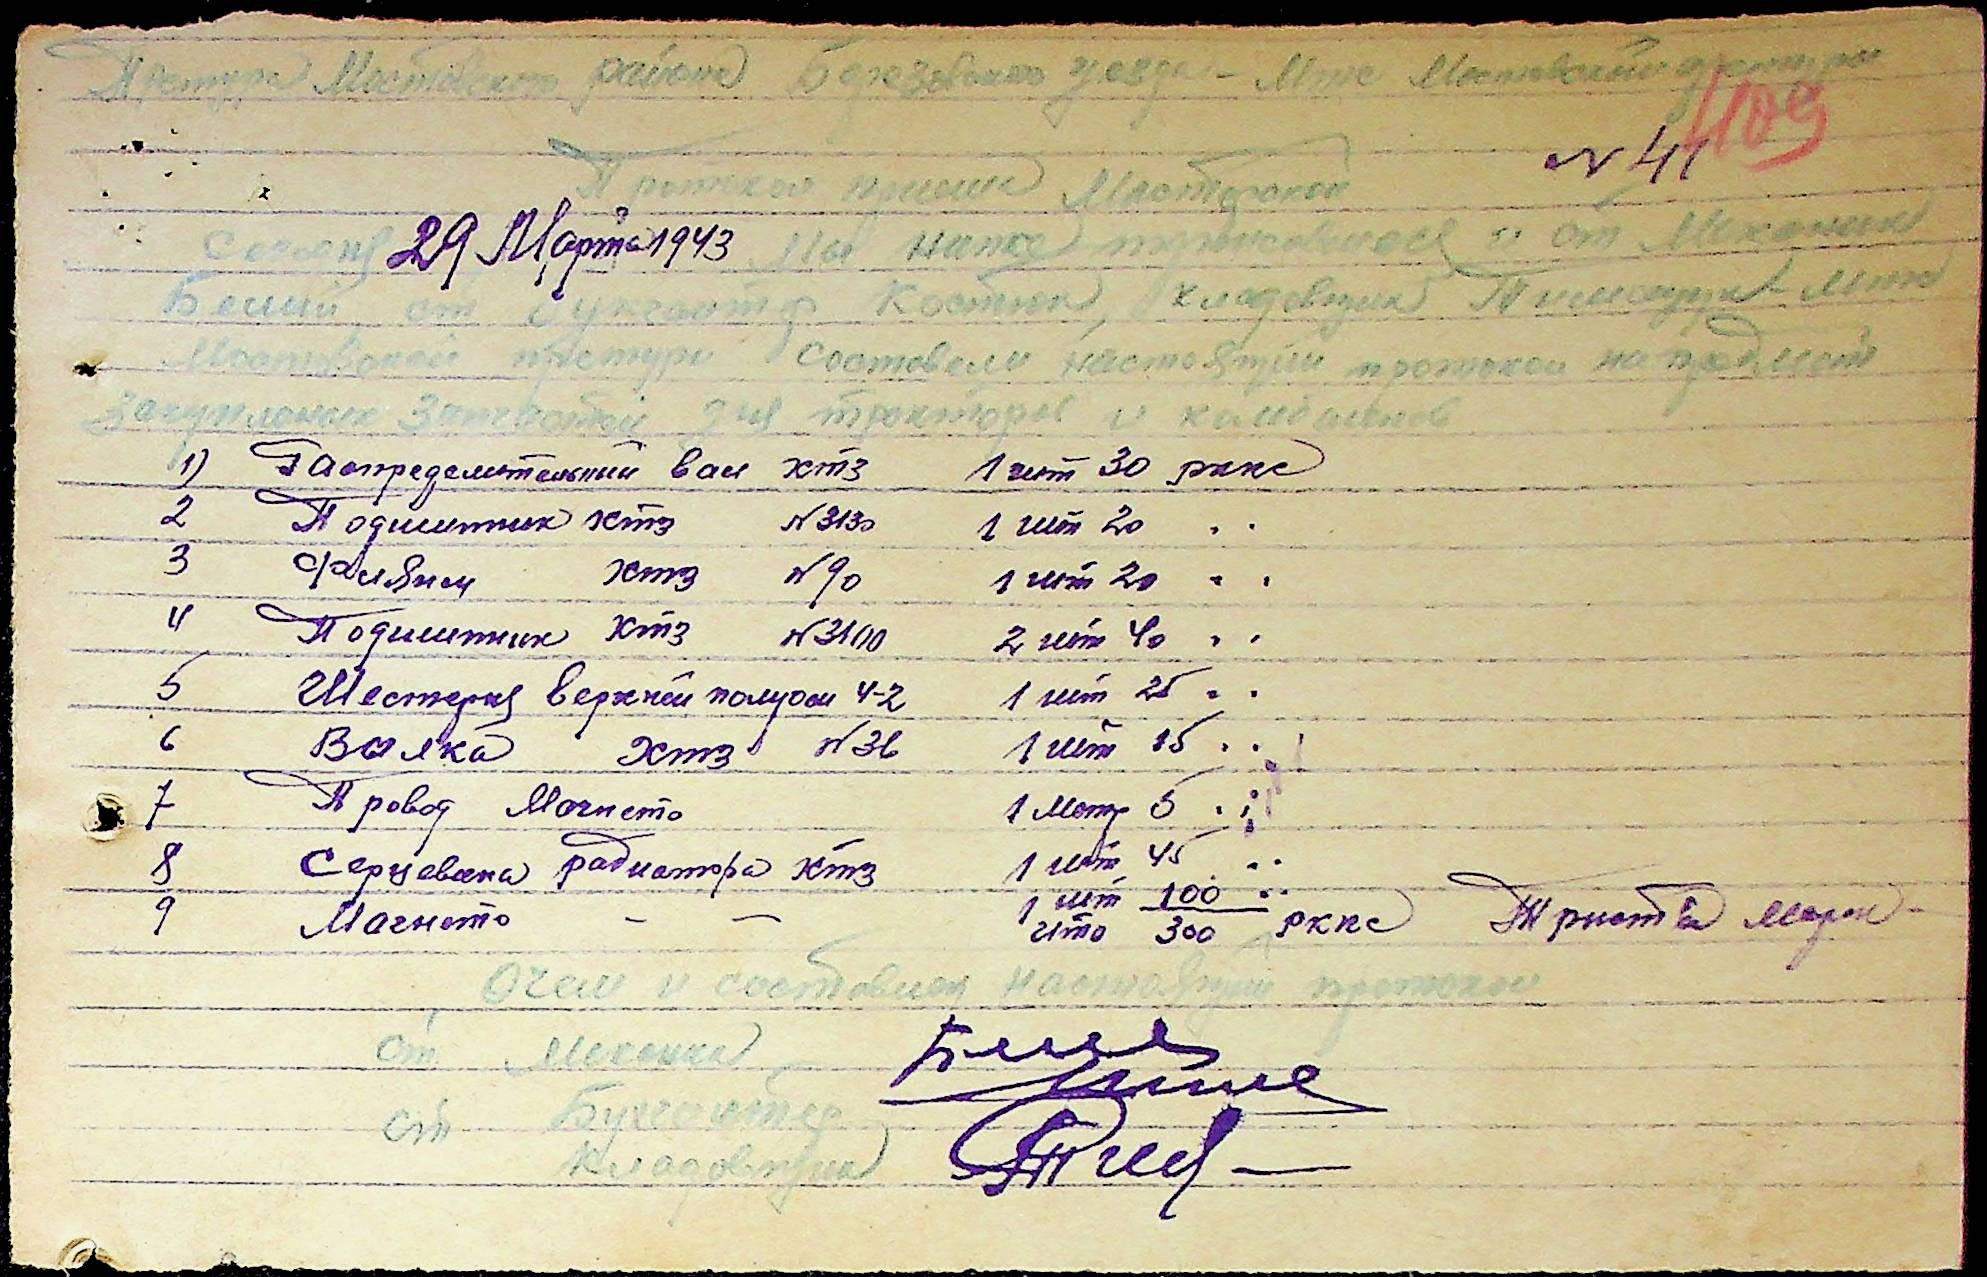 Претура Мостовского района Березовского уезда - Мтс Мостовской претуры
409
N 41
Протокол приема Мастерской
Сего дня 29 Марта 1943 Мы ниже и от Механик
Белий, от бухгалтер Костюк, кладовщик Тимощук Мтс
Мостовской претури составели настоящии протокол на предмет
закупленых Запчастей для трактора и комбаинов
1) Распределительний вал хтз 1 шт 30 ркке
2 Подшипник хтз N3130 1 шт 20 " "
3 Фланец хтз N90 1 шт 20 " "
4 Подшипник хтз N3100 2 шт 40 " "
5 Шестерня верхней полуоси 4-2 1 шт 25 " "
6 Валка хтз N36 1 шт 15 " "
7 Провод Магнето 1 Метр 5 " "
8 Серцевена радиатора хтз 1 шт 45 " "
9 Магнето — — 1 шт 100 " "
ито 300 ркке Триста марок
Очем и составлен настоящий протокол
от Механка
от Бухгалтер
Кладовщик